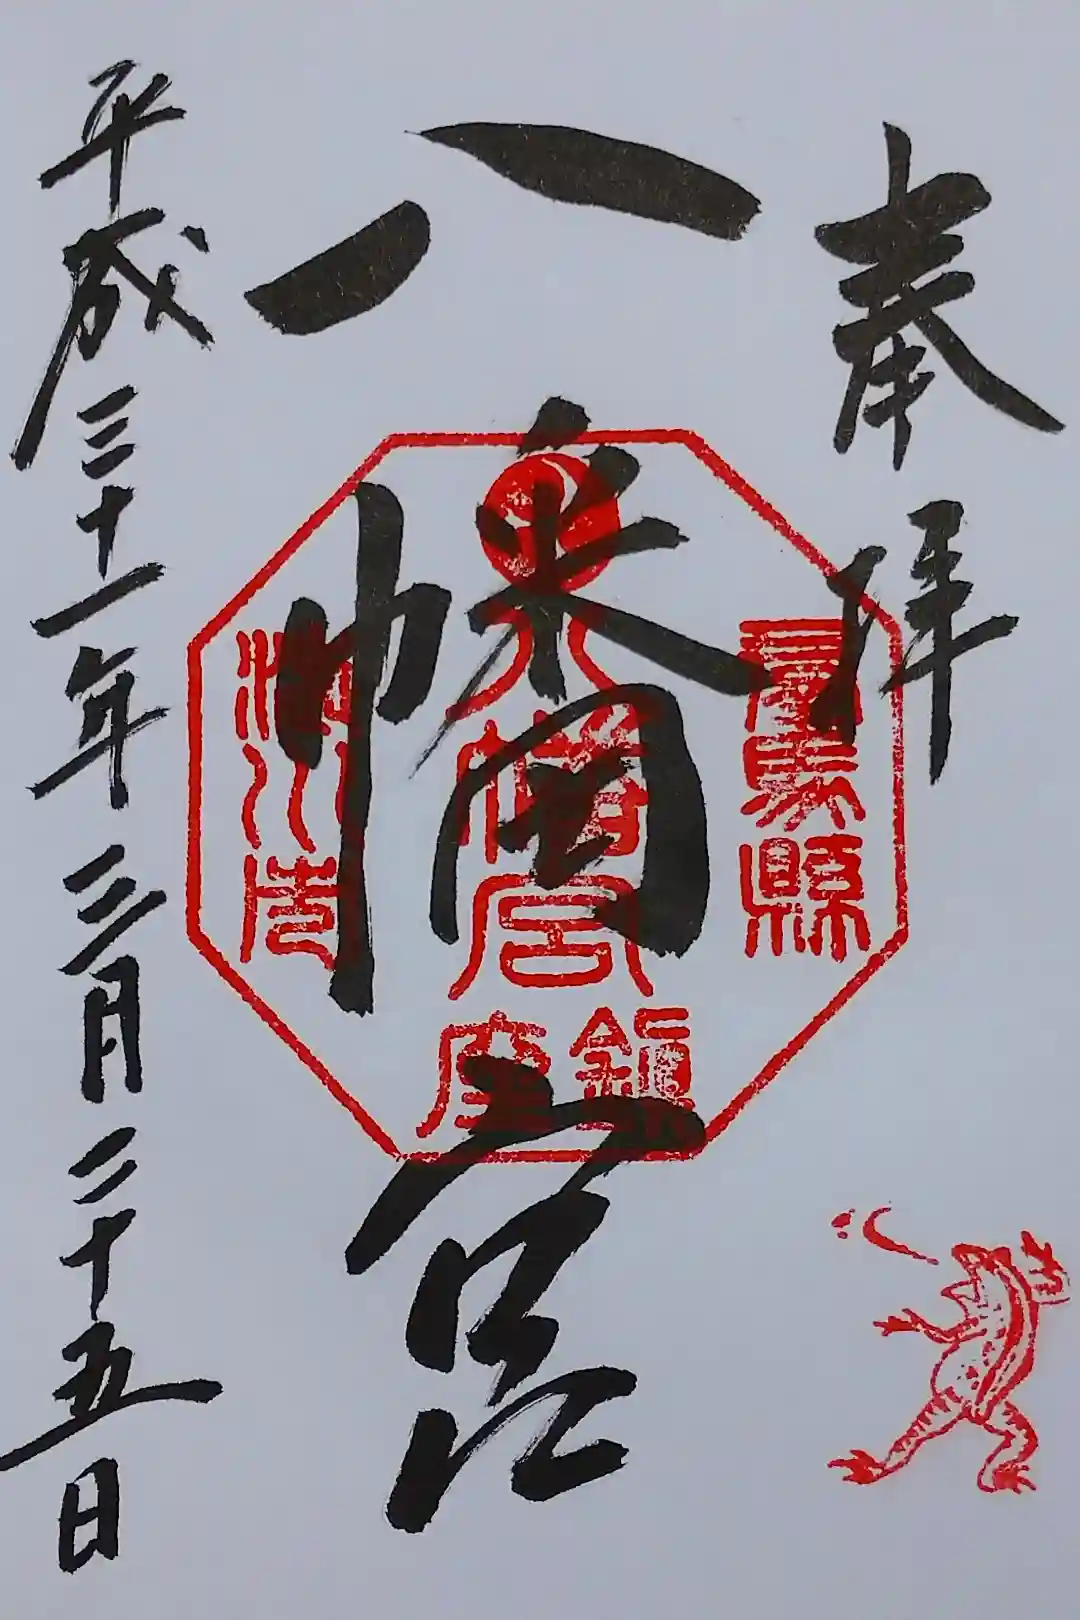 奉拝
群馬縣
八幡宮
八幡宮
鎮座
渋川市
平成三十一年三月二十五日